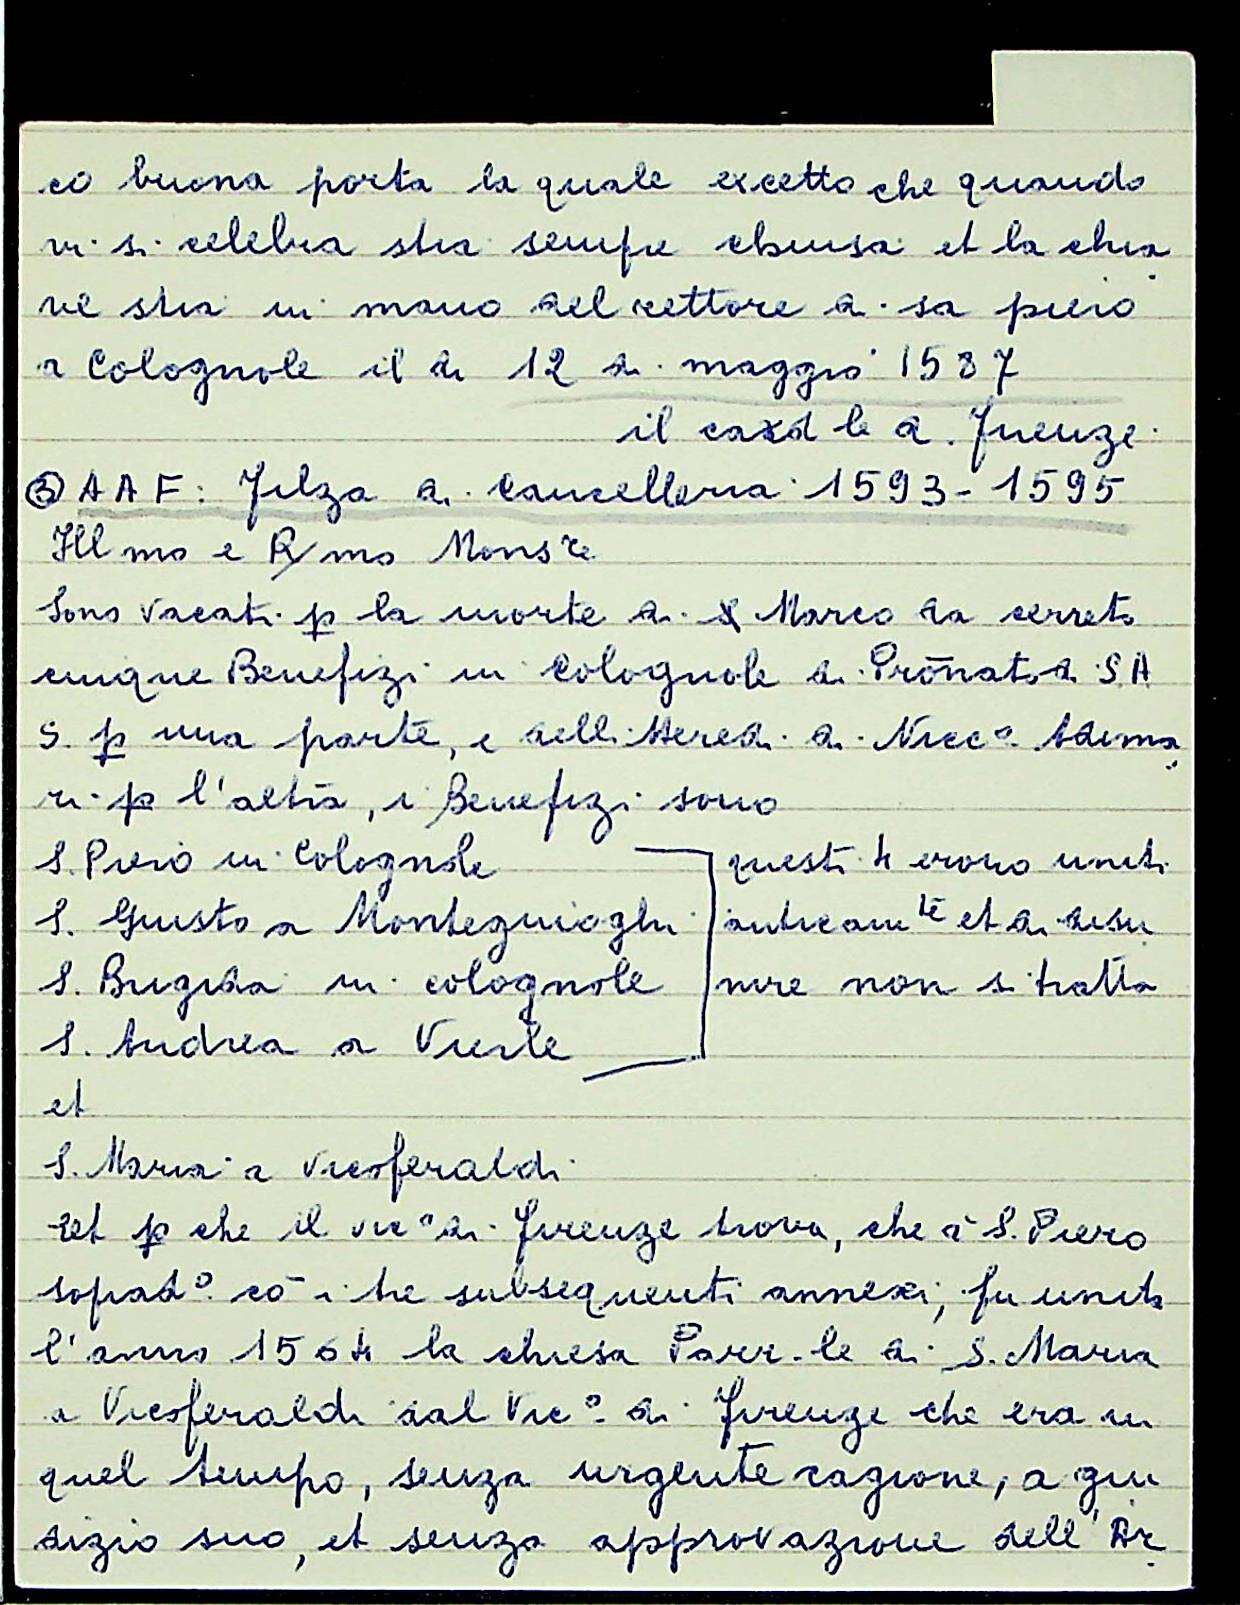 cō buona porta la quale excetto che quando
vi si celebra stia sempre chiusa et la chia
ve stia in mano del rettore di sā piero
a Colognole il di 12 di maggio 1587
il card le di Firenze
③ AAF: Filza di Cancelleria 1593-1595
Ill mo e R mo Mons re
Sono vacati p la morte di Marco da cerreto
cinque Benefizi in Colognole di Prōnato di S A
S. p una parte, e delli Heredi di Nicc° Adima
ri p l'altra, i Benefizi sono
S. Piero in Colognole questi 4 erono uniti
S. Giusto a Montegiuioghi anticam te et di disu
S. Brigida in colognole nire non si tratta
S. Andrea a Vierle
et
S. Maria a Vicoferaldi
Et p che il vic° di Firenze trova, che à S. Piero
soprad° cō i tre subsequenti annexi, fu unita
l'anno 1564 la chiesa Parr.le di S. Maria
a Vicoferaldi dal Vic° di Firenze che era in
quel tempo, senza urgente cagione, a giu
dizio suo, et senza approvazione dell'Ar